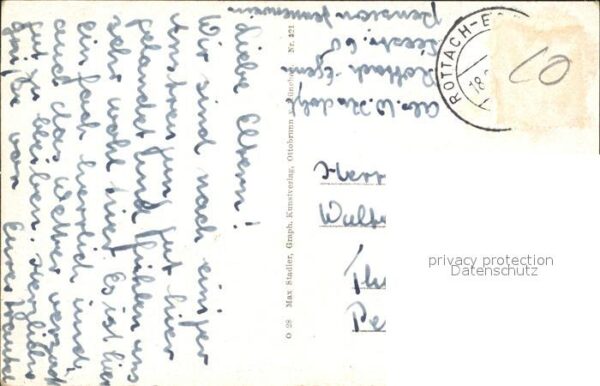 Liebe Eltern!
Wir sind nach einiger
gelandet und fühlen uns
sehr wohl hier. Es ist hier
einfach herrlich und
auch das Wetter
gut zu bleiben. Herzliche
Grüße von Eurer
Abs. W.
Rottach-Egern
Seestr. 6
Pension
O 28 Max Stadler, Graph. Kunstverlag, Ottobrunn v. München Nr. 421
ROTTACH-E
18.
10
Herr
Walte
Thu
Pe
privacy protection
Datenschutz